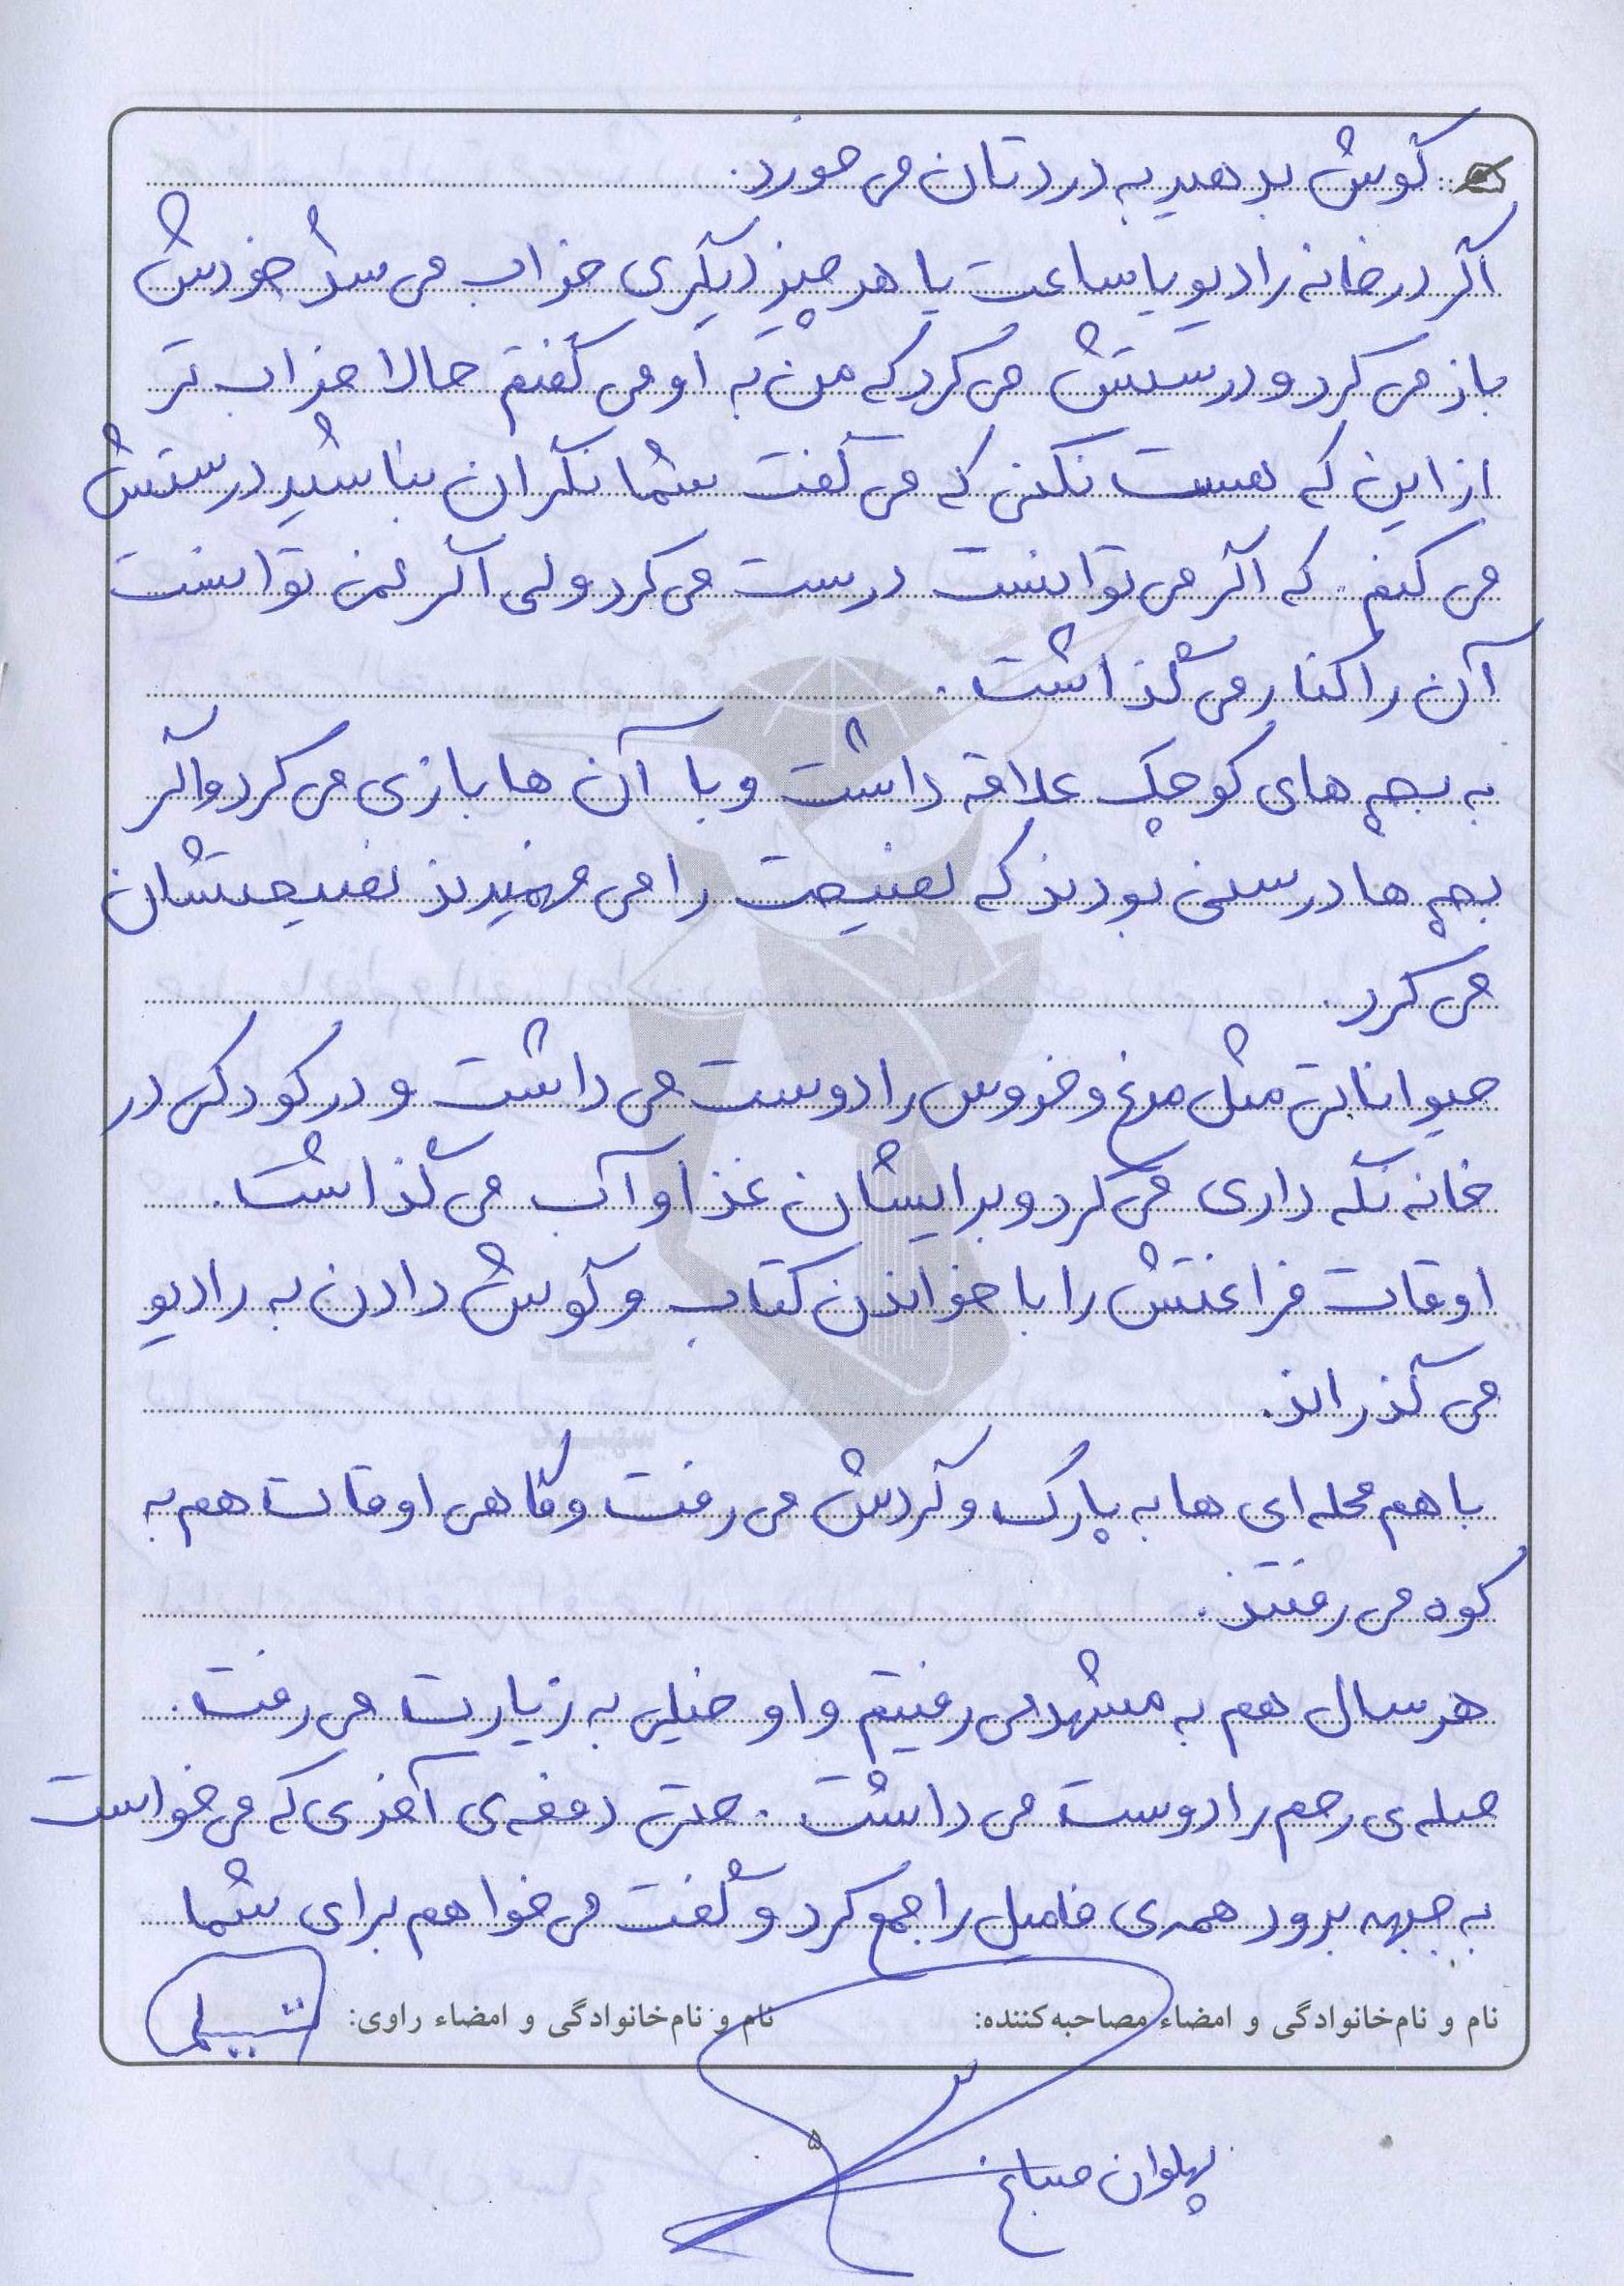 گوش بدهید به دردتان می خورد.
اگر در خانه رادیو یا ساعت یا هر چیز دیگری خراب می شد خودش
باز می کرد و درستش می کرد که من به او می گفتم حالا خراب تر
از این که هست نکنی که می گفت شما نگران نباشید درستش
می کنم. که اگر می توانست درست می کرد ولی اگر نمی توانست
آن را کنار می گذاشت.
به بچه های کوچک علاقه داشت و با آن ها بازی می کرد و اگر
بچه ها در سنی بودند که نصیحت را می فهمیدند نصیحتشان
می کرد.
حیواناتی مثل مرغ و خروس را دوست می داشت و در کودکی در
خانه نگه داری می کرد و برایشان غذا و آب می گذاشت.
اوقات فراغتش را با خواندن کتاب و گوش دادن به رادیو
می گذراند.
با هم محله ای ها به پارک و گردش می رفت و گاهی اوقات هم به
کوه می رفتند.
هر سال هم به مشهد می رفتیم و او خیلی به زیارت می رفت.
صله ی رحم را دوست می داشت. حتی دفعه ی آخری که می خواست
به جبهه برود همه ی فامیل را جمع کرد و گفت می خواهم برای شما
نام و نام‌خانوادگی و امضاء مصاحبه‌کننده: نام و نام‌خانوادگی و امضاء راوی:
۵
پهلوان صباغ